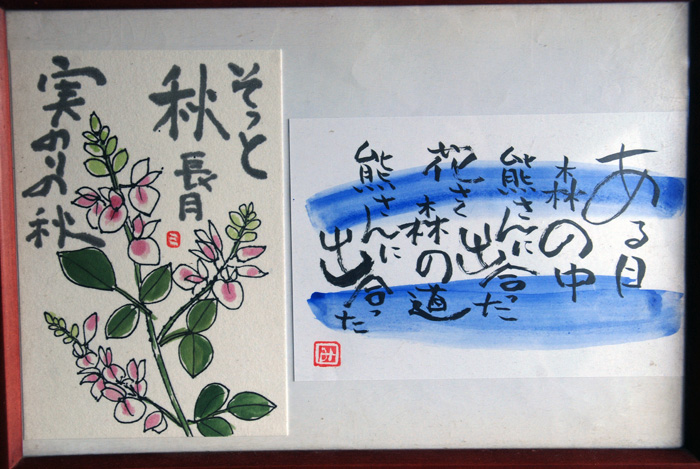 そっと
秋
長月
実のりの秋
ある日
森の中
熊さんに
出合った
花さく
森の道
熊さんに
出合った